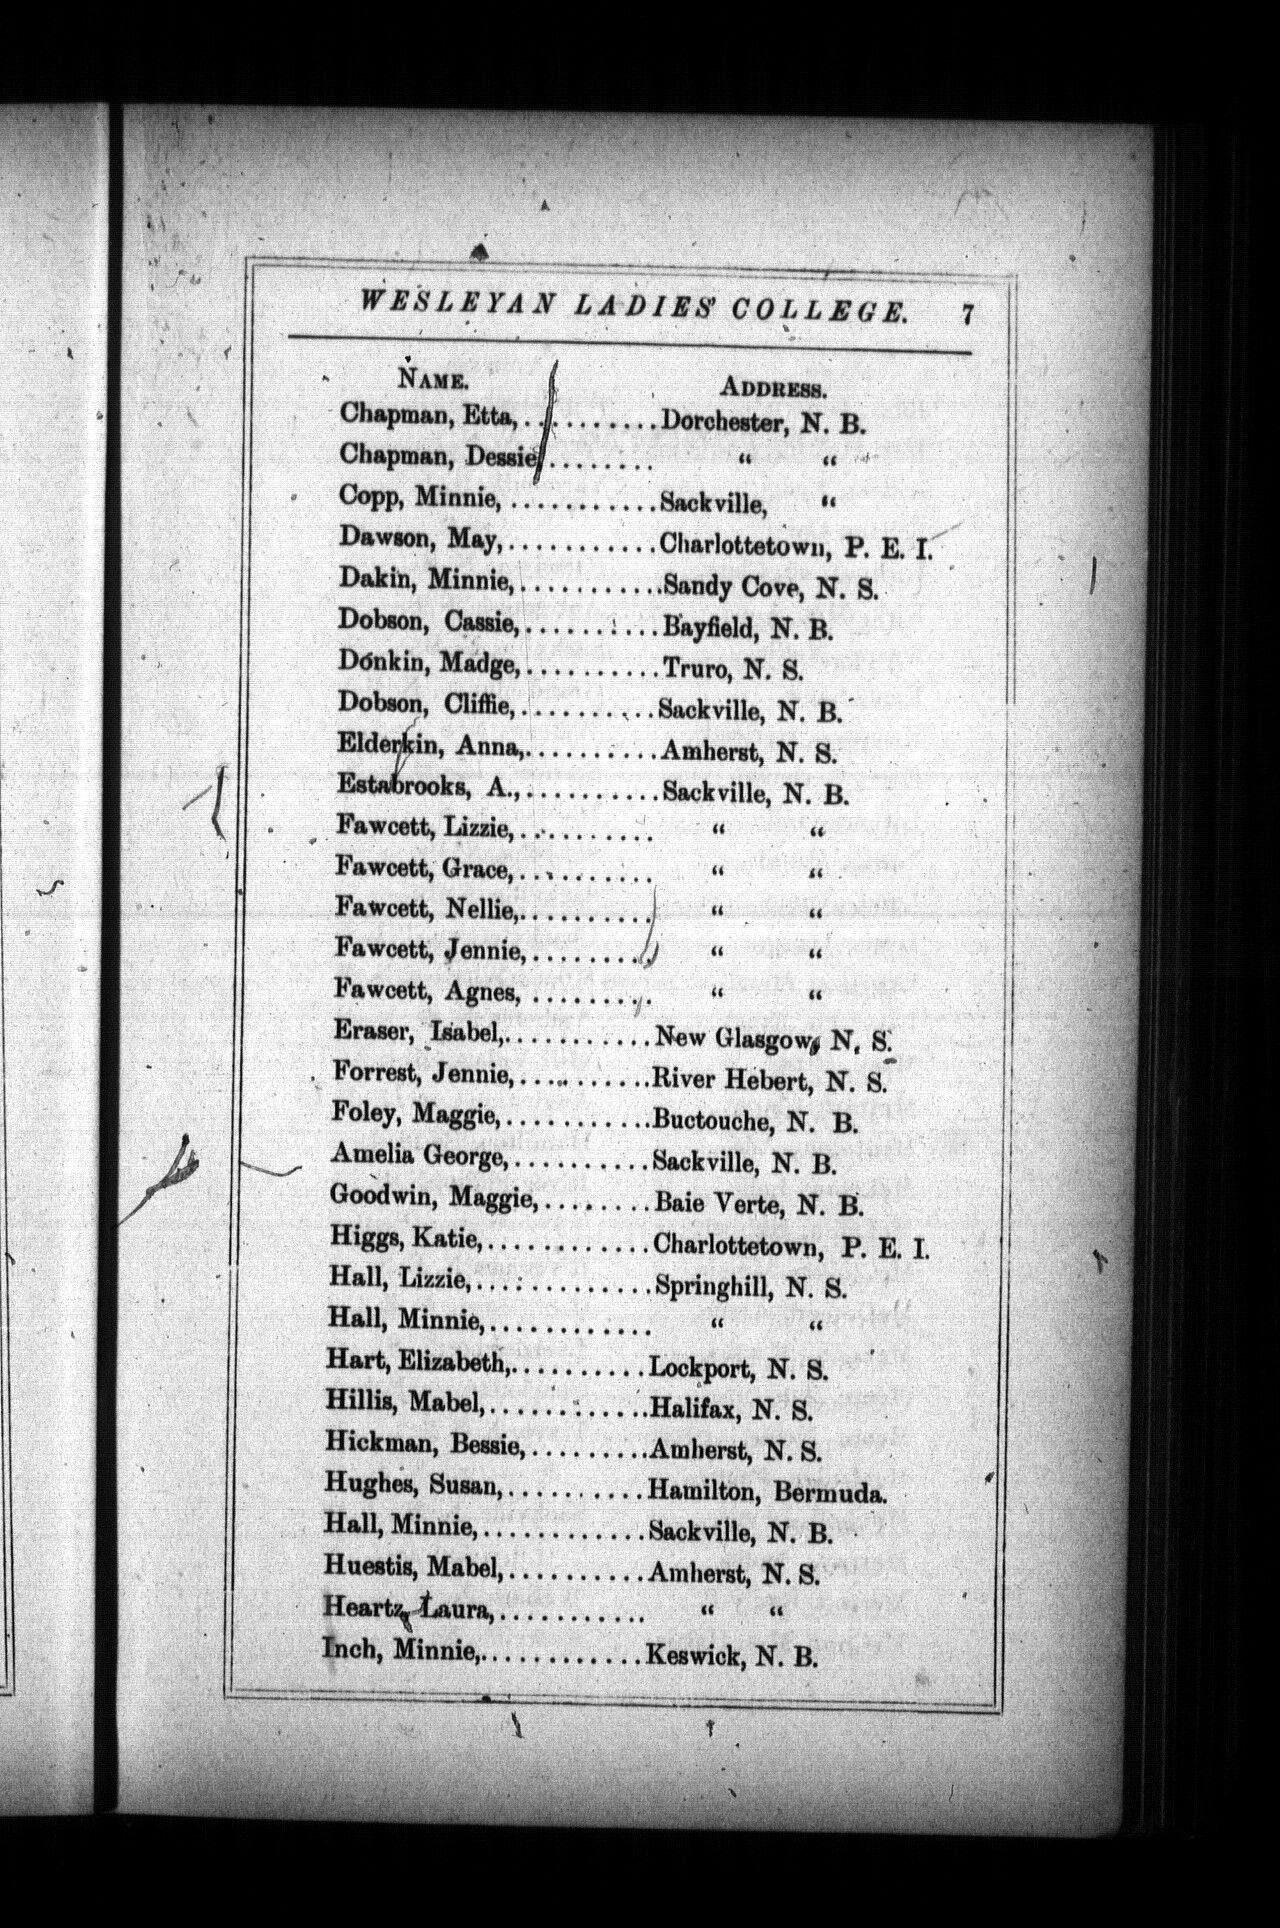 WESLEYAN LADIES' COLLEGE. 7
NAME. ADDRESS.
Chapman, Etta, .......... Dorchester, N. B.
Chapman, Dessie ........ “ “
Copp, Minnie, ........... Sackville, “
Dawson, May, ........... Charlottetown, P. E. I.
Dakin, Minnie, .......... Sandy Cove, N. S.
Dobson, Cassie, .......... Bayfield, N. B.
Donkin, Madge, .......... Truro, N. S.
Dobson, Cliffie, .......... Sackville, N. B.
Elderkin, Anna, .......... Amherst, N. S.
Estabrooks, A., .......... Sackville, N. B.
Fawcett, Lizzie, .......... “ “
Fawcett, Grace, .......... “ “
Fawcett, Nellie, .......... “ “
Fawcett, Jennie, ......... “ “
Fawcett, Agnes, ......... “ “
Eraser, Isabel, ........... New Glasgow, N. S.
Forrest, Jennie, .......... River Hebert, N. S.
Foley, Maggie, ........... Buctouche, N. B.
Amelia George, .......... Sackville, N. B.
Goodwin, Maggie, ........ Baie Verte, N. B.
Higgs, Katie, ............ Charlottetown, P. E. I.
Hall, Lizzie, ............. Springhill, N. S.
Hall, Minnie, ............ “ “
Hart, Elizabeth, .......... Lockport, N. S.
Hillis, Mabel, ............ Halifax, N. S.
Hickman, Bessie, ......... Amherst, N. S.
Hughes, Susan, .......... Hamilton, Bermuda.
Hall, Minnie, ............ Sackville, N. B.
Huestis, Mabel, .......... Amherst, N. S.
Heartz, Laura, ........... “ “
Inch, Minnie, ............ Keswick, N. B.